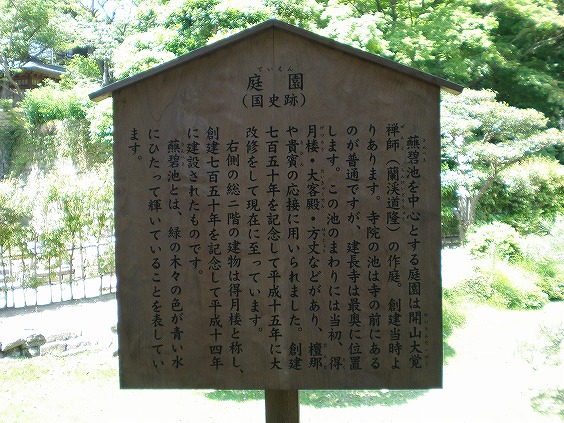 庭園
(国史跡)
蘸碧池を中心とする庭園は開山大覚
禅師(蘭渓道隆)の作庭。創建当時よ
りあります。寺院の池は寺の前にある
のが普通ですが、建長寺は最奥に位置
します。この池のまわりには当初、得
月楼・大客殿・方丈などがあり、檀那
や貴賓の応接に用いられました。創建
七百五十年を記念して平成十五年に大
改修をして現在に至っています。
右側の総二階の建物は得月楼と称し、
創建七百五十年を記念して平成十四年
に建設されたものです。
蘸碧池とは、緑の木々の色が青い水
にひたって輝いていることを表してい
ます。